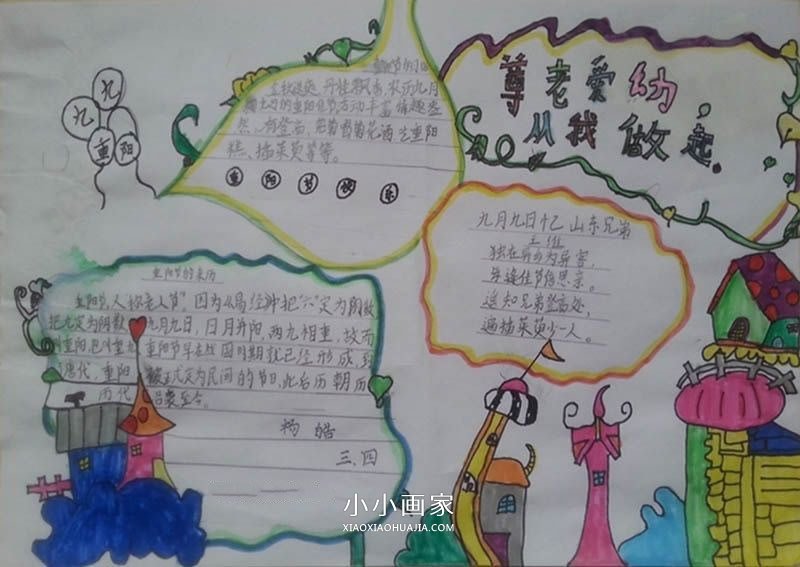 尊老爱幼，
从我做起.
九 九
重 阳
金秋送爽，丹桂飘香，农历九月
九日的重阳佳节活动丰富，情趣盎
然，有登高、赏菊、喝菊花酒、吃重阳
糕、插茱萸等等。
重 阳 节 快 乐
九月九日忆山东兄弟
王维
独在异乡为异客，
每逢佳节倍思亲。
遥知兄弟登高处，
遍插茱萸少一人。
重阳节的来历
重阳节，人称老人节”。因为《易经》中把“六”定为阴数
把九定为阳数 九月九日，日月并阳，两九相重，故而
叫重阳，也叫重九 重阳节早在战国时期就已经形成，到
唐代，重阳 被正式定为民间的节日，此后历朝历
代 沿袭至今。
杨皓
三.四
小小画家
XIAOXIAOHUAJIA.COM